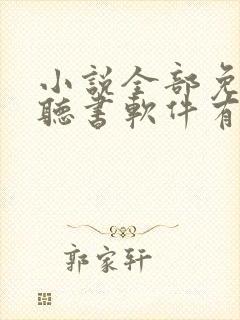 小説全部免
聽書軟件有
郭家轩